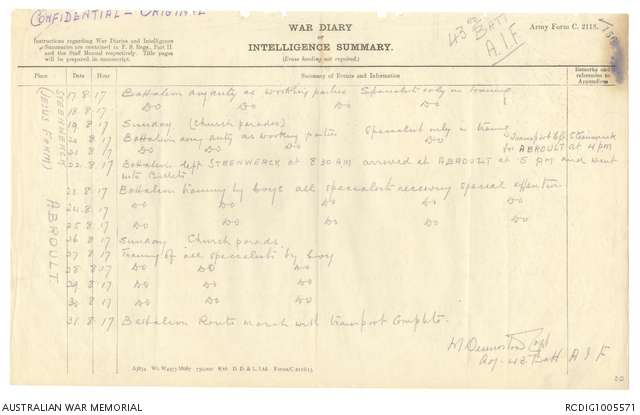 CONFIDENTIAL - ORIGINAL
WAR DIARY
or
INTELLIGENCE SUMMARY.
(Erase heading not required).
43rd BATT
A.I.F
Army Form C. 2118.
Instructions regarding War Diaries and Intelligence
Summaries are contained in F. S. Regs., Part II.
and the Staff Manual respectively. Title pages
will be prepared in manuscript.
Place Date Hour Summary of Events and Information Remarks and references to Appendices
STEENWERCK
(JESUS FARM)
17 . 8 . 17 Battalion any duty as working parties Specialist only in training
18 . 8 . 17 DO DO DO DO
19 . 8 . 17 Sunday (Church parades)
20 . 8 . 17 Battalion any duty as working parties Specialist only in training
21 8 17 DO DO DO DO Transport left Steenwerck for ABROULT at 4 pm
22. 8 17 Battalion dept STEENWERCK at 8 30 AM arrived at ABROULT at 5 AM and went
into Billets
ABROULT
23. 8 17 Battalion training by Coys all specialist receiving special attention
24. 8. 17 DO DO DO DO DO
25. 8 17 DO DO DO DO DO
26 8 17 Sunday Church parade
27 8 17 Training of all specialists by Coy
28. 8 17 DO DO DO
29 8 17 DO DO DO
30 8 17 DO DO DO
31. 8 17 Battalion Route march with transport complete.
Capt
Adj - 43 Batt A I F
D. D. & L. Ltd.
AUSTRALIAN WAR MEMORIAL
RCDIG1005571